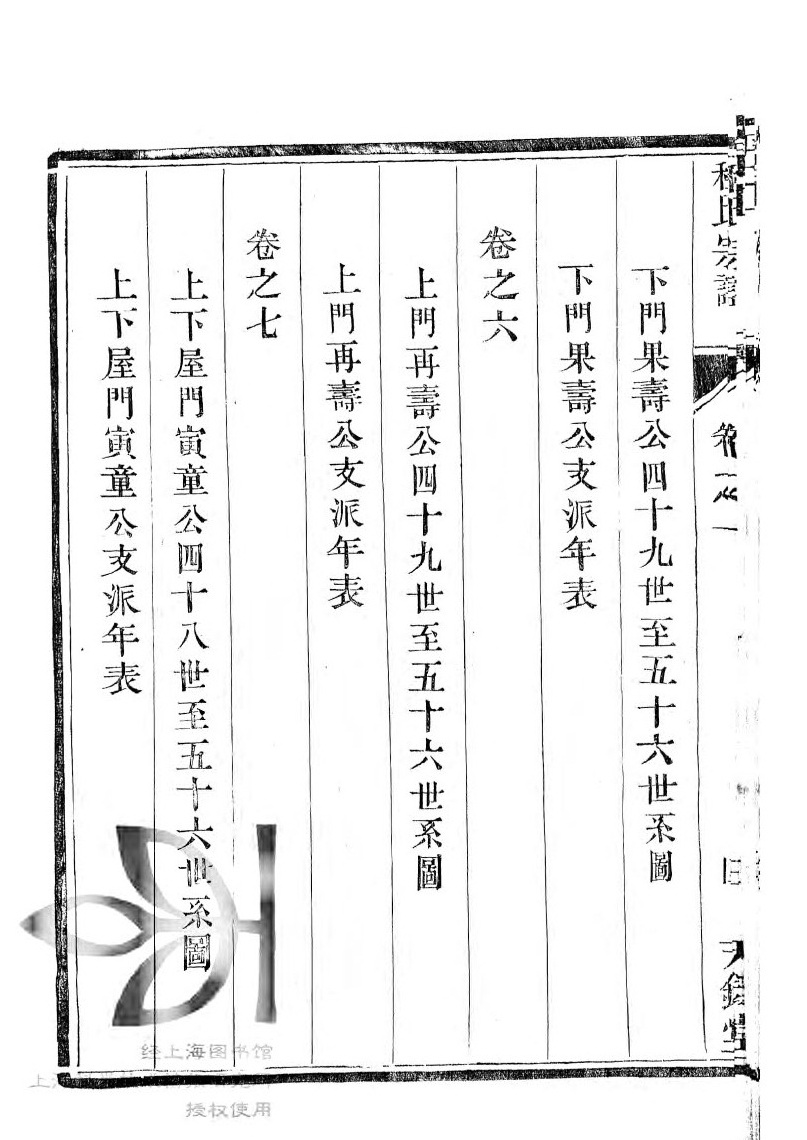 下門果壽公四十九世至五十六世系圖
下門果壽公支派年表
卷之六
上門再壽公四十九世至五十六世系圖
上門再壽公支派年表
卷之七
上下屋門寅童公四十八世至五十六世系圖
上下屋門寅童公支派年表
经上海图书馆
授权使用